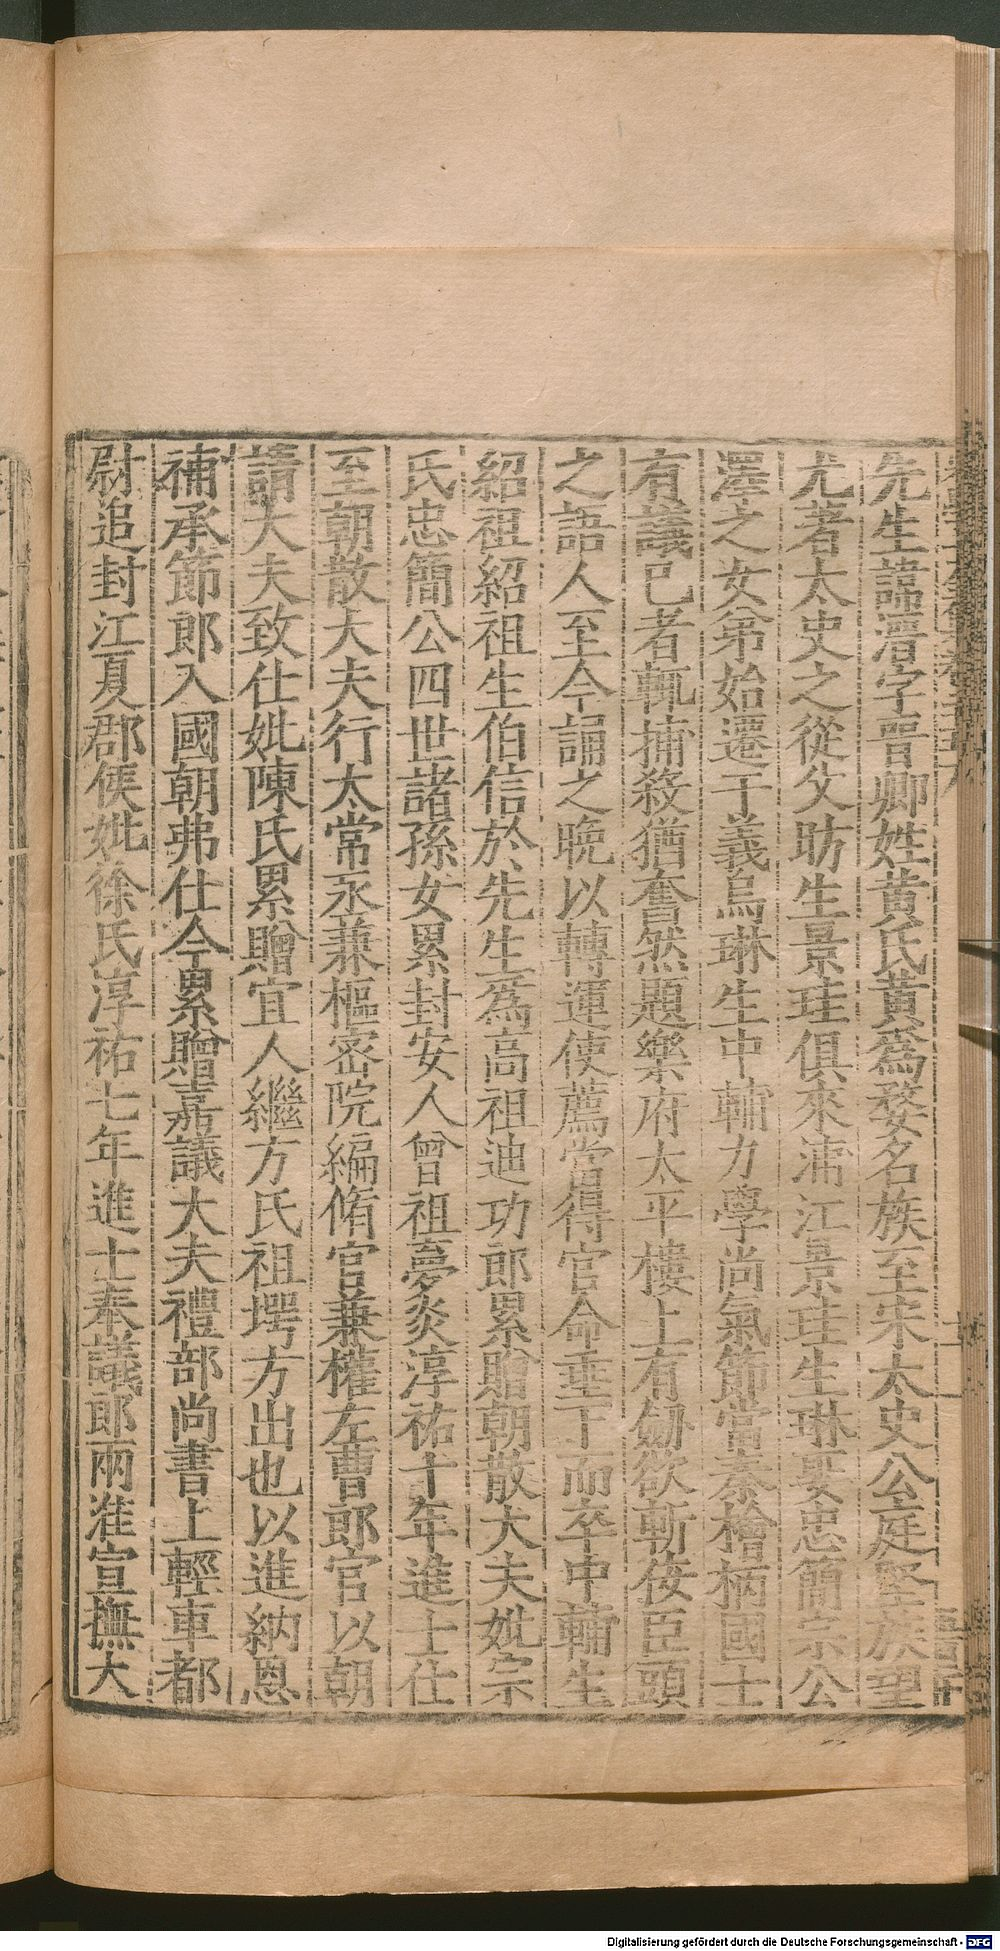 先生諱溍字晋卿姓黄氏黄爲婺名族至宋太史公庭堅族望
尤著太史之從父昉生景珪俱來浦江景珪生琳娶忠簡宗公
澤之女弟始遷于義烏琳生中輔力學尚氣節當秦檜柄國士
有議已者輒捕殺猶奮然題樂府太平樓上有劒欲斬佞臣頭
之語人至今誦之晩以轉運使薦當得官命垂下而卒中輔生
紹祖紹祖生伯信於先生爲高祖迪功郎累贈朝散大夫妣宗
氏忠簡公四世諸孫女累封安人曾祖夢炎淳祐十年進士仕
至朝散大夫行太常丞兼樞宻院編脩官兼權左曹郎官以朝
請大夫致仕妣陳氏累贈宜人繼方氏祖堮方出也以進納恩
補承節郎入國朝弗仕今累贈嘉議大夫禮部尚書上輕車都
尉追封江夏郡侯妣徐氏淳祐七年進士奉議郎兩淮宣撫大
Digitalisierung gefördert durch die Deutsche Forschungsgemeinschaft - DFG